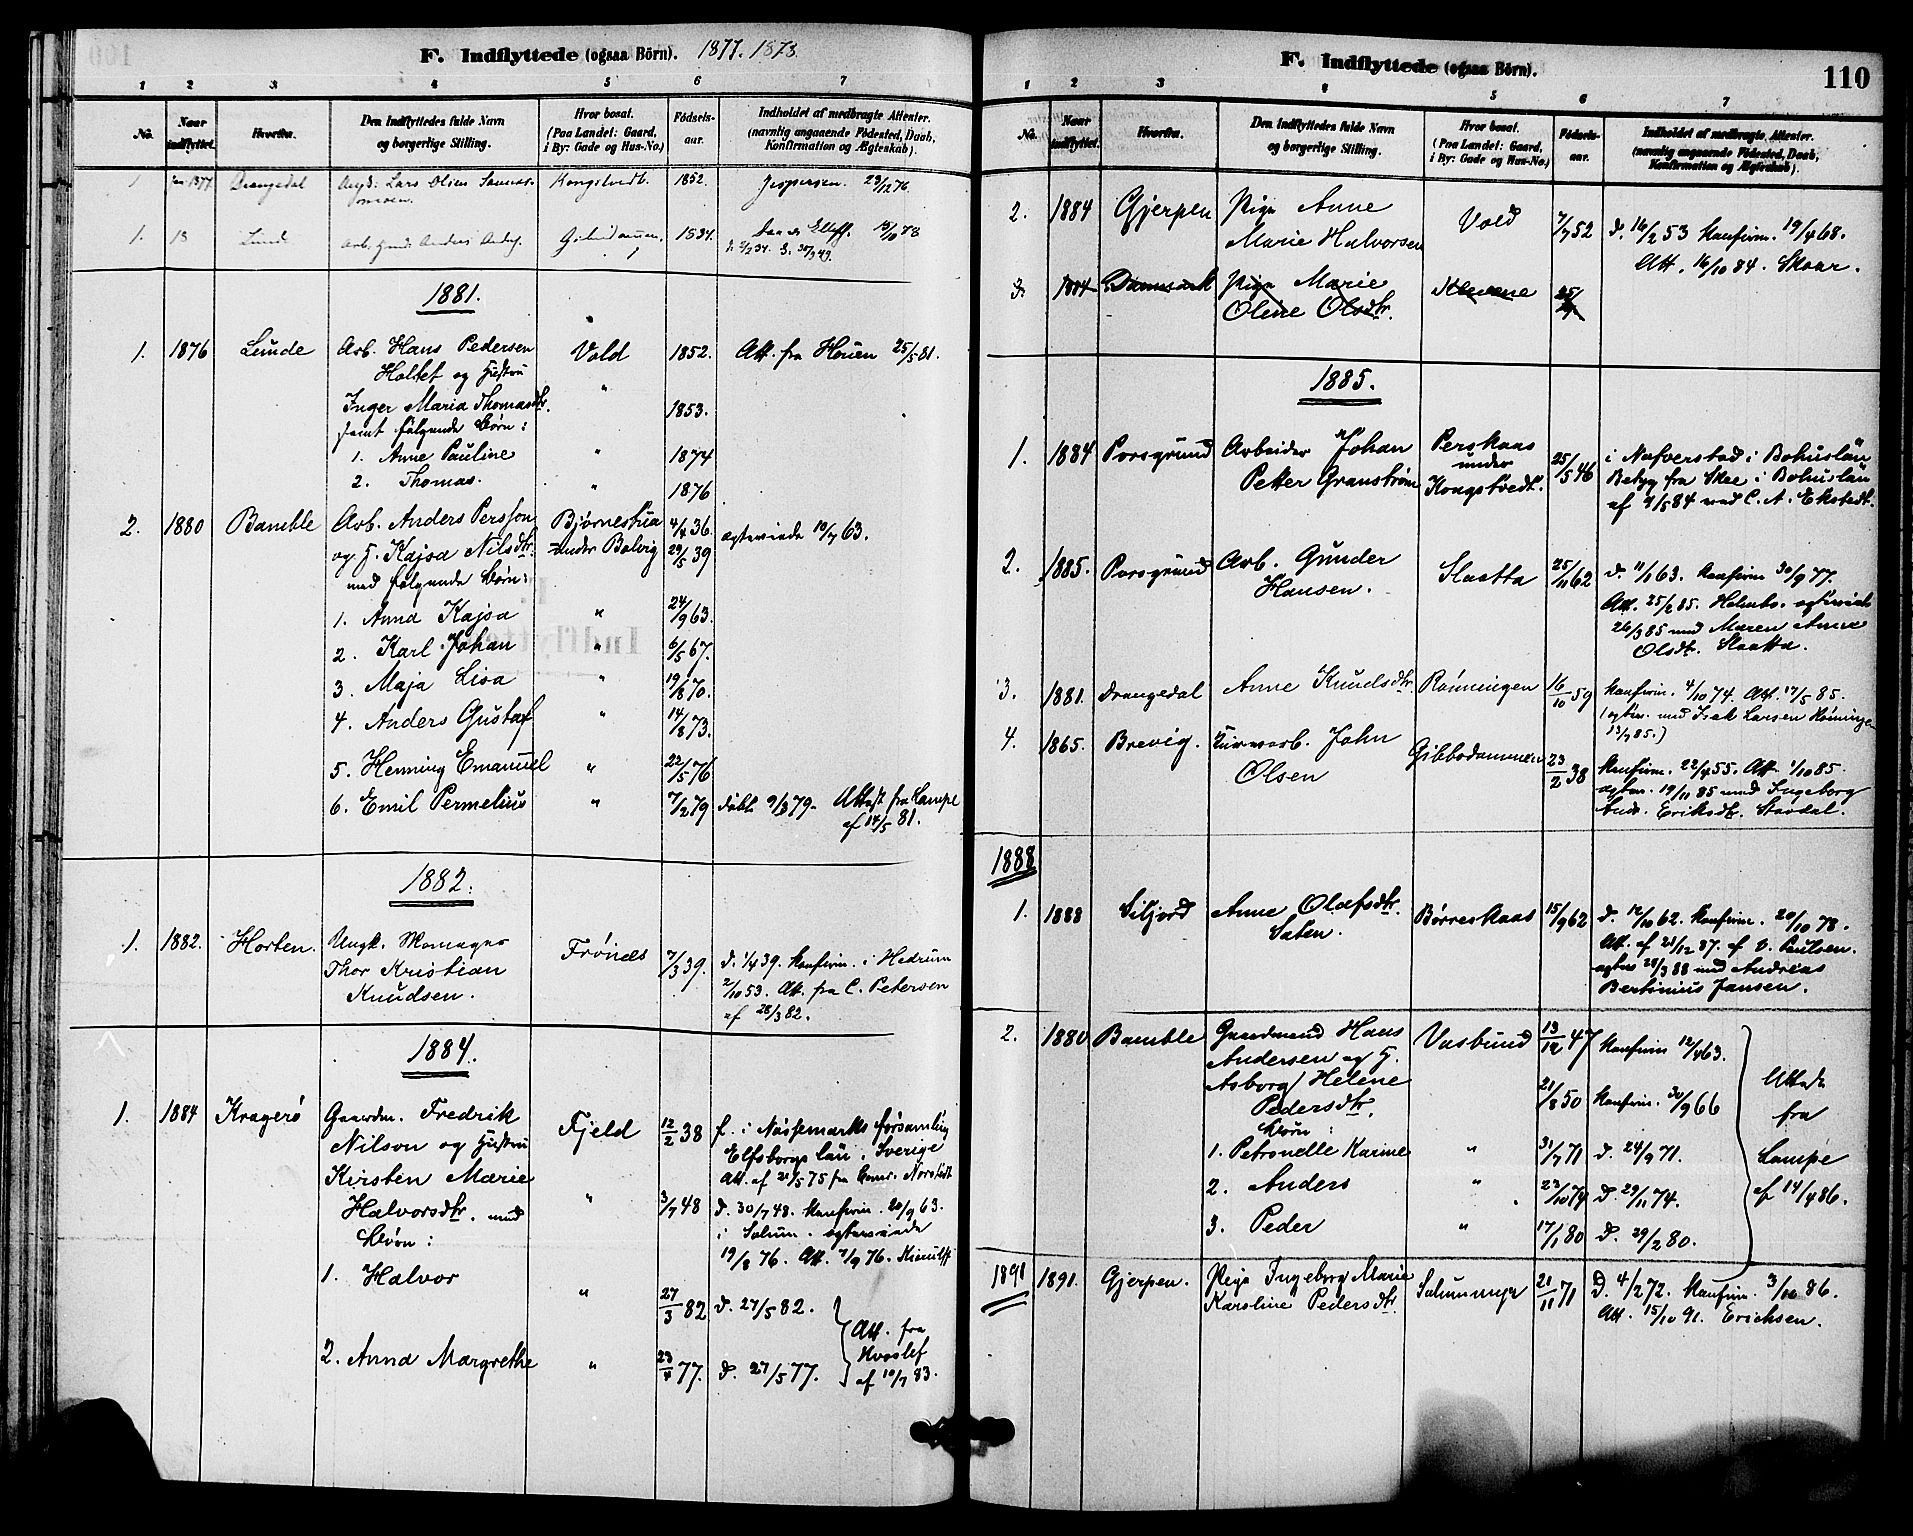 F. Indflyttede (ogsaa Börn). 1877. 1878.
1 2 3 4 5 6 7
No.
Naar indflyttet.
Hvorfra.
Den Indflyttedes fulde Navn og borgerlige Stilling.
Hvor bosat. (Paa Landet: Gaard, i By: Gade og Hus-No.)
Födsels-aar.
Indholdet af medbragte Attester. (navnlig angaaende Födested, Daab, Konfirmation og Ægteskab).
1 1877 Drangedal Lars Olsen Kongstvedt. 1852. Jespersen. 29/12 76
1. Lunde Anders 1834.
1881.
1. 1876 Lunde Arb. Hans Pedersen Vold 1852. Att. fra Houen 25/5 81.
Holtet og Hustru "
Inger Maria Thomasdtr. 1853.
samt følgende Børn:
1. Anne Pauline " 1874
2. Thomas. " 1876
2. 1880 Bamble Arb. Anders Persson Bjørnestua 4/4 36 ægteviede 10/7 63.
og H. Kajsa Nilsdtr. under Bolvig 29/5 39
med følgende Børn:
1. Anna Kajsa " 24/9 63.
2. Karl Johan " 6/5 67.
3. Maja Lisa " 19/8 70.
4. Anders Gustaf " 14/8 73.
5. Henning Emanuel " 22/5 76
6. Emil Permelius " 7/2 79 døbt 9/3 79. Attest fra Lampe
af 14/5 81.
1882.
1. 1882. Horten. Ungk. Frönæs 7/3 39. d. 1/4 39. Konfirm. i Hedrum
Thor Kristian 2/10 53. Att. fra C. Petersen
Knudsen. af 28/3 82.
1884.
1. 1884 Kragerö Gaardm. Fredrik Fjeld 12/2 38 f. i Nössemarks församling
Nilson og Hustru Elfsborgs län i Sverige
Kirsten Marie Att. af 21/5 75 fra
Halvorsdtr. med " 3/7 48 d. 30/7 48. Konfirm. 20/9 63.
Børn: i Solum. ægteviede
19/8 76. Att. 2/9 76.
1. Halvor " 27/3 82 d. 27/5 82.
2. Anna Margrethe " 23/4 77. d. 27/5 77.
Att. fra
af 10/7 83.
F. Indflyttede (ogsaa Börn).
110
1 2 3 4 5 6 7
No.
Naar indflyttet.
Hvorfra.
Den Indflyttedes fulde Navn og borgerlige Stilling.
Hvor bosat. (Paa Landet: Gaard, i By: Gade og Hus-No.)
Födsels-aar.
Indholdet af medbragte Attester. (navnlig angaaende Födested, Daab, Konfirmation og Ægteskab).
2. 1884 Gjerpen Pige Anne Vold 7/7 52 d. 16/2 53 Konfirm. 19/4 68.
Marie Halvorsen Att. 16/10 84. Skaar.
3. 1884 Pige Marie Klevene 25/
Oline Olsdtr.
1885.
1. 1884 Porsgrund Arbeider Johan Perskaas 25/5 46 i Nafverstad i Bohuslän
Petter Granström under Kongstvedt. Betyg fra Skee i Bohuslän
af 9/5 84 ved C. A. Ekstedt.
2. 1885. Porsgrund Arb. Gunder Slaatta 25/11 62 d. 11/1 63. Konfirm 30/9 77.
Hansen. Att. 25/2 85. Holmbo. ægteviet
26/3 85 med Maren Anne
Olsdt. Slaatta.
3. 1881. Drangedal Anne Knudsdtr. Rønningen 16/10 59 Konfirm. 4/10 74. Att. 17/5 85.
(ægtev. med Isak Larsen Rønningen
13/7 85.)
4. 1865. Brevig. John Gibbsdammen 23/2 38 Konfirm. 22/4 55. Att. 1/10 85.
Olsen ægtev. 19/11 85 med Ingeborg
Andr. Eriksdt. Stavdal.
1888
1. 1888 Siljord Anne Olafsdtr. Børreskaas 15/9 62 d. 12/10 62. Konfirm. 20/10 78.
Saten. Att. af 21/12 87. af V. Paulsen.
ægtev 28/3 88 med Andreas
Bertinius Jansen.
2. 1880 Bamble Gaardmand Hans Vasbund 13/12 47 Konfirm 12/4 63.
Andersen og H.
Asborg Helene 21/8 50 Konfirm. 30/9 66
Pedersdtr.
Børn:
1. Petronelle Karine " 31/7 71 d. 24/9 71.
2. Anders " 23/10 74 d. 29/11 74.
3. Peder " 17/1 80 d. 29/2 80.
Attest
fra
Lampe
af 14/4 86.
1891 1891. Gjerpen. Pige Ingeborg Marie Solummyr 21/11 71 D. 4/2 72. Konfirm. 3/10 86.
Karoline Pedersdtr Att. 15/10 91. Erichsen.